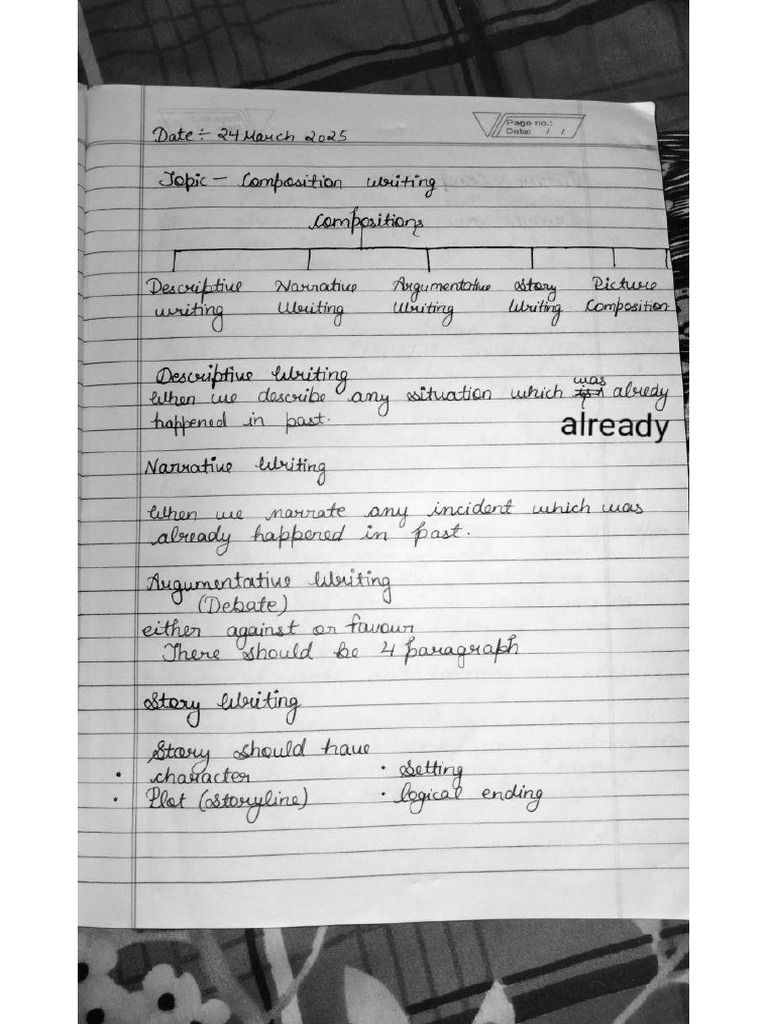 Page no.:
Date: / /
Date :- 24 March 2025
Topic - Composition writing
Compositions
Descriptive Narrative Argumentative Story Picture
writing Writing Writing Writing Composition
Descriptive Writing
When we describe any situation which was alredy
happened in past.
already
Narrative Writing
When we narrate any incident which was
already happened in past.
Argumentative Writing
(Debate)
either against or favour
There should be 4 paragraph
Story Writing
Story should have
• character • Setting
• Plot (storyline) • logical ending